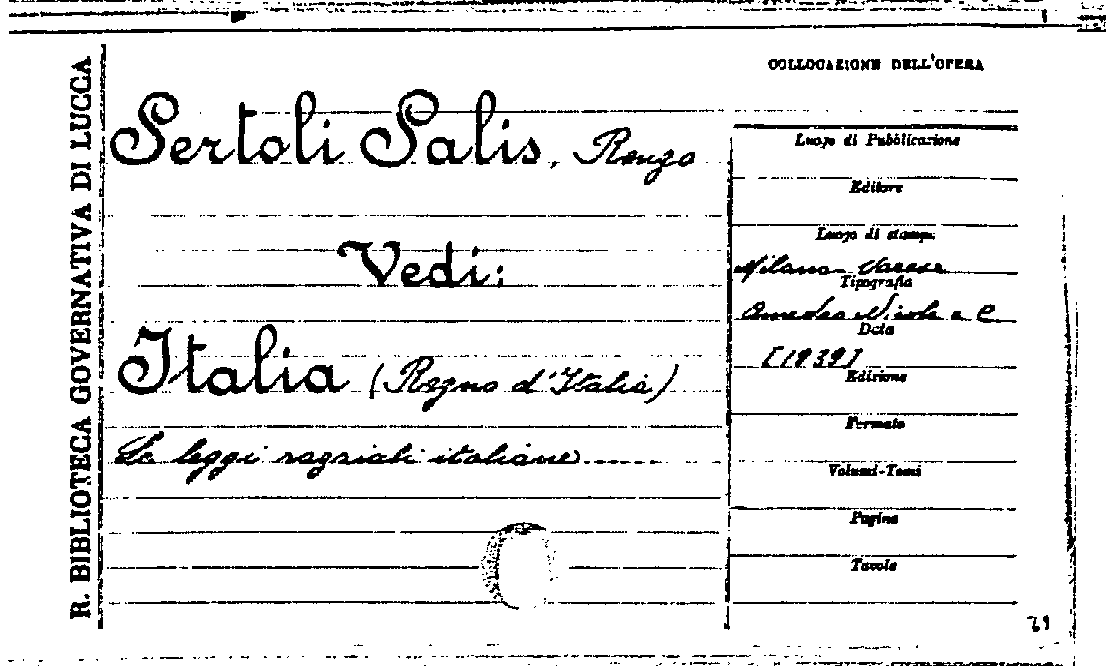 R. BIBLIOTECA GOVERNATIVA DI LUCCA
COLLOCAZIONE DELL'OPERA
Sertoli Salis, Renzo
Vedi:
Italia (Regno d'Italia)
Le leggi razziali italiane......
Luogo di Pubblicazione
Editore
Luogo di stampa
Milano - Varese
Tipografia
Amedeo Nicola e C.
Data
[1939]
Edizione
Formato
Volumi-Tomi
Pagine
Tavole